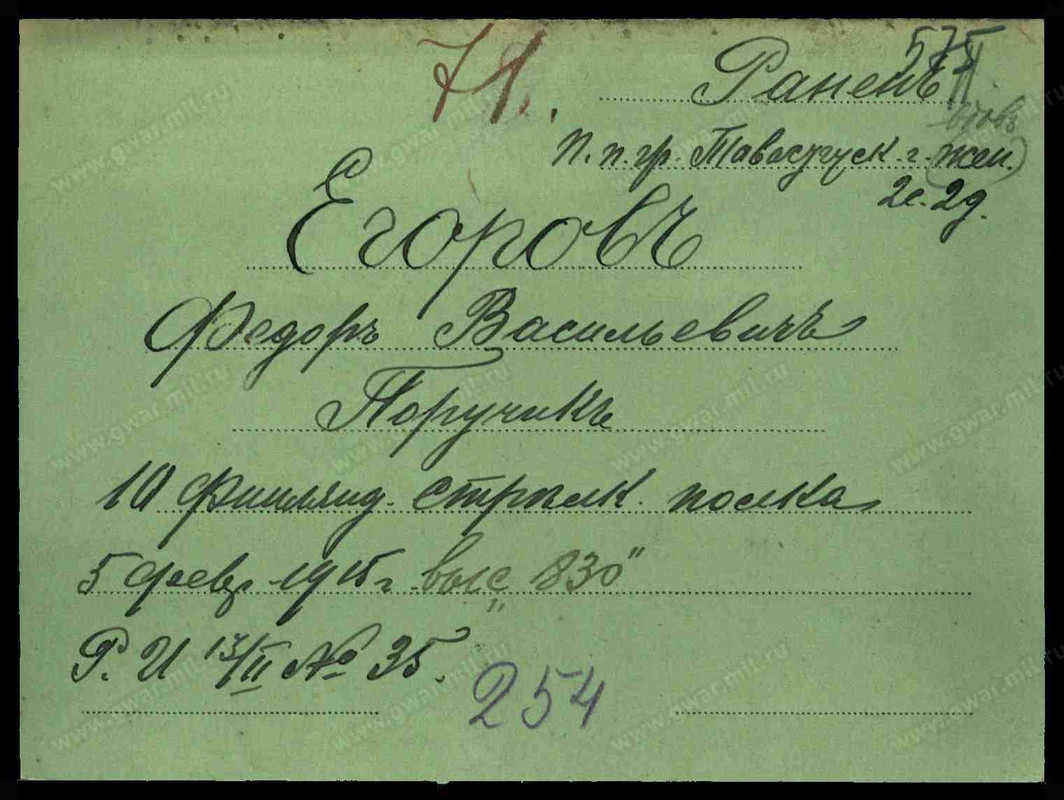 575
71.
Раненъ
п. п. гр. Тавастгуск. г. жен.
2с. 2д.
Егоровъ
Федоръ Васильевичъ
Поручикъ
10 Финлянд. стрѣлк. полка
5 февр. 1915 г. выс. "830"
Р. И 13/II № 35.
254
www.gwar.mil.ru